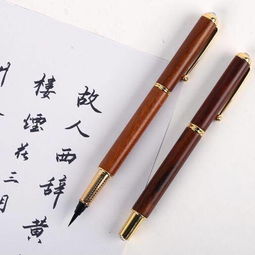 故人西辞黄
楼烟花三月
州